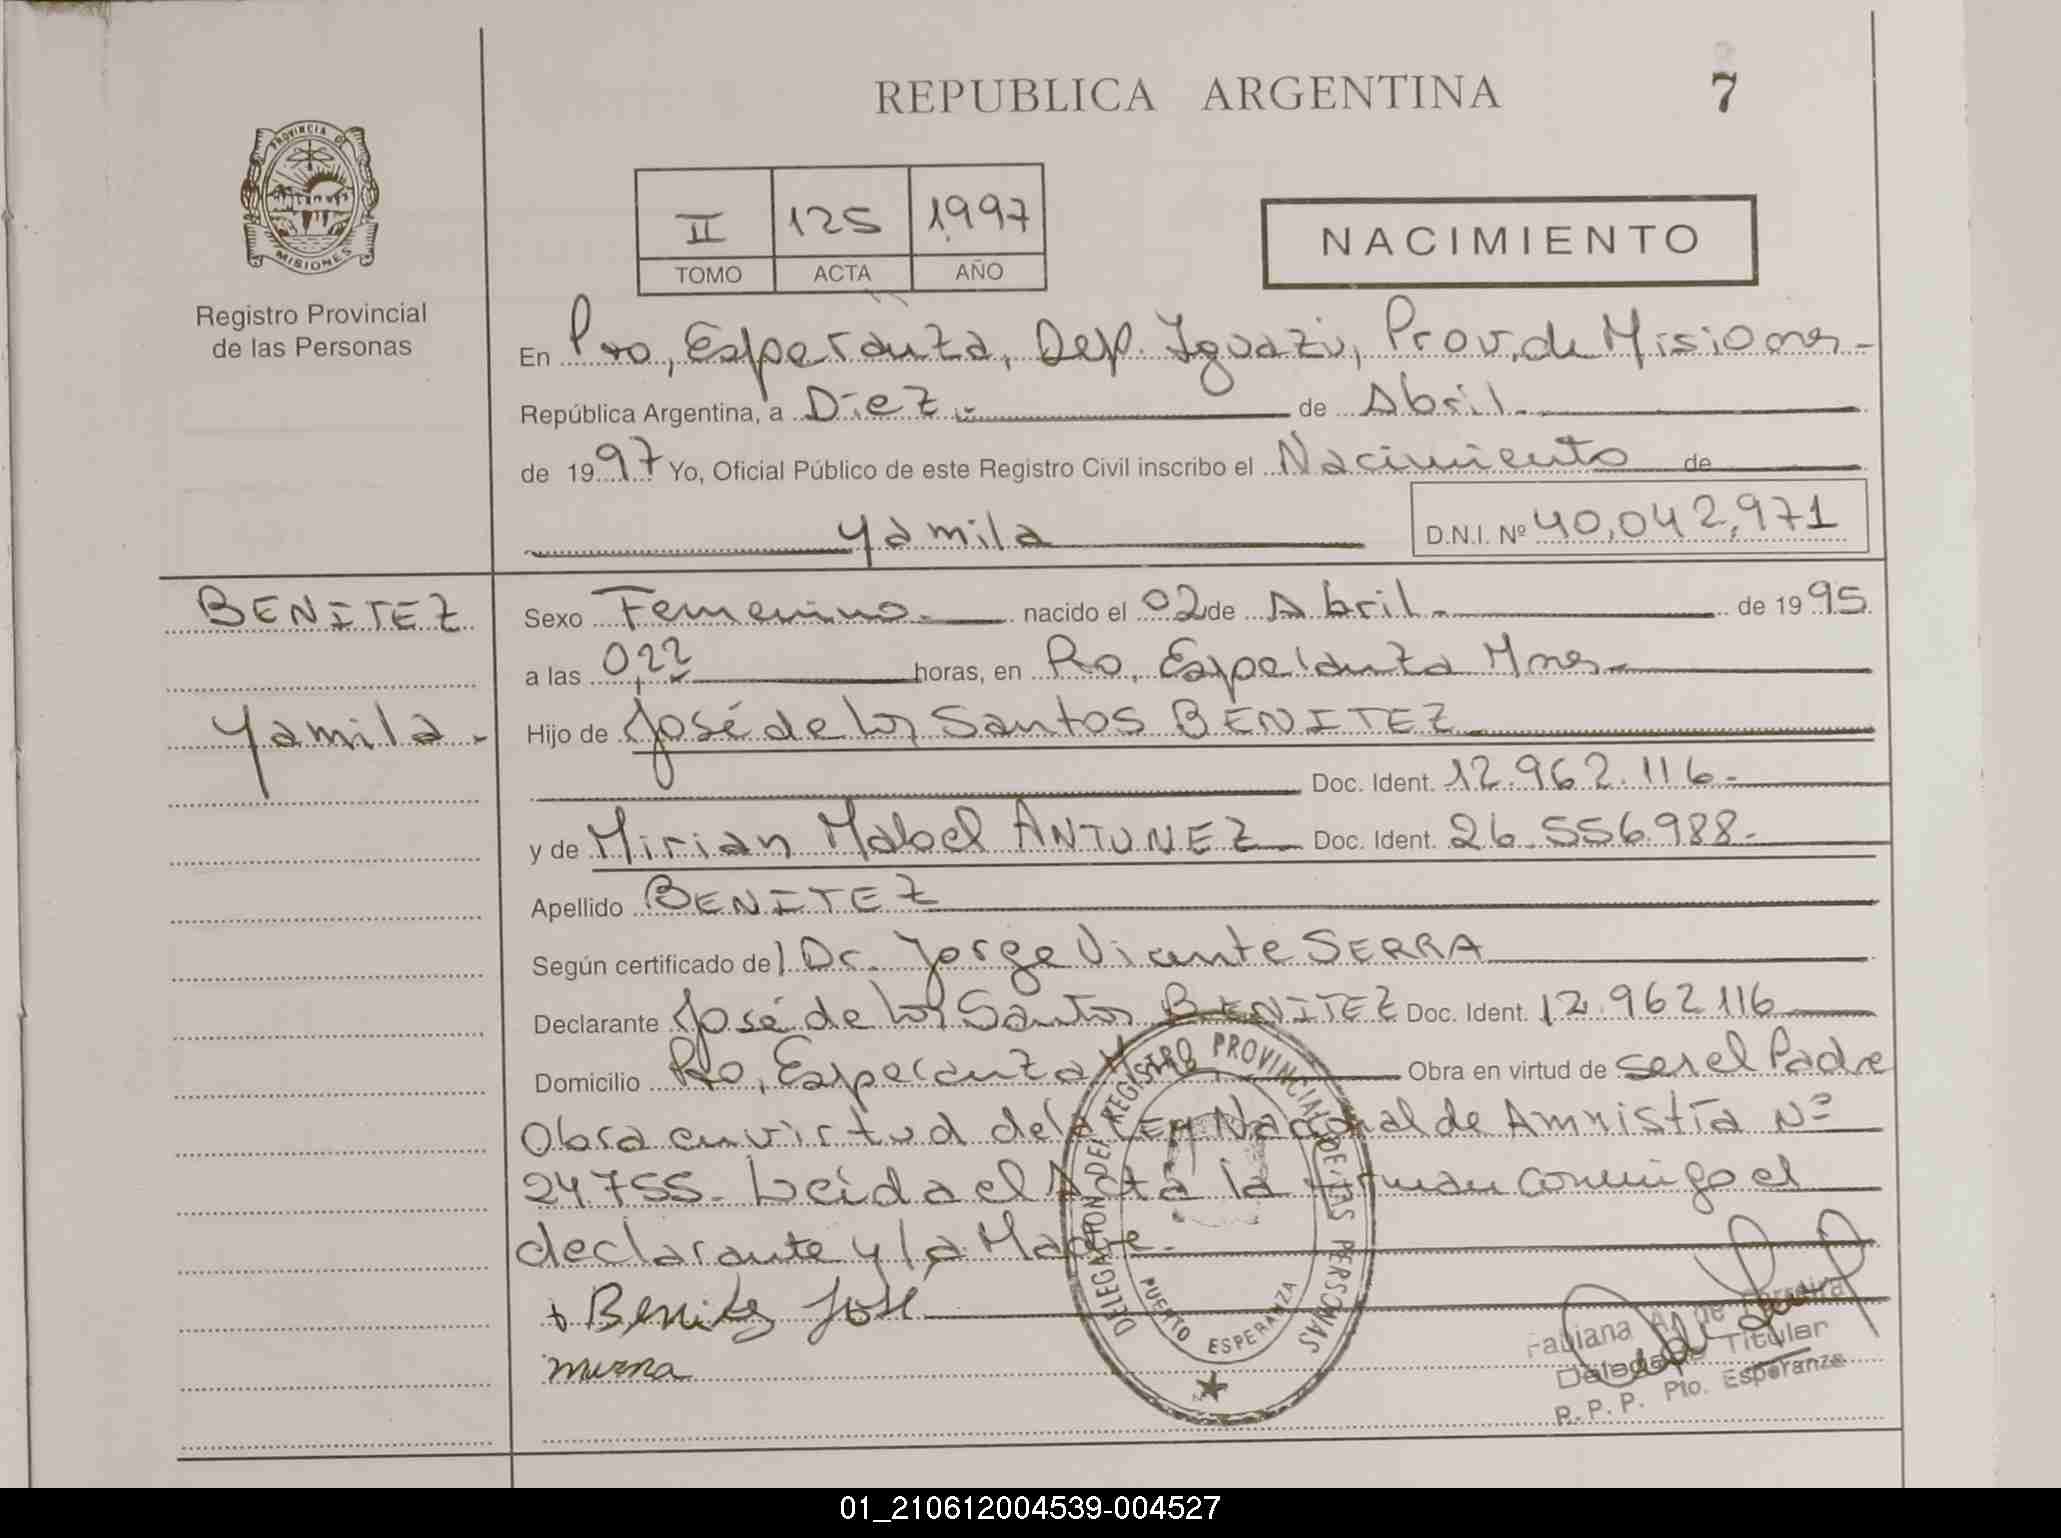 REPUBLICA ARGENTINA
7
PROVINCIA DE
MISIONES
Registro Provincial
de las Personas
II 125 1997
TOMO ACTA AÑO
NACIMIENTO
En Pto, Esperanza, Dep. Iguazú, Prov. de Misiones-
República Argentina, a Diez.- de Abril.
de 1997 Yo, Oficial Público de este Registro Civil inscribo el Nacimiento de
Yamila
D.N.I. Nº 40.042.971
BENITEZ
Yamila.-
Sexo Femenino.- nacido el 02 de Abril.- de 1995
a las 0,22 horas, en Pto, Esperanza Mnes-
Hijo de José de los Santos BENITEZ
Doc. Ident. 12.962.116.-
y de Mirian Mabel ANTUNEZ Doc. Ident. 26.556.988.-
Apellido BENITEZ
Según certificado de l Dr. Jorge Vicente SERRA
Declarante José de los Santos BENITEZ Doc. Ident. 12.962116
Domicilio Pto, Esperanza Obra en virtud de ser el Padre
Obra en virtud de la LEY Nacional de Amnistía Nº
24.755. Leida el Acta la firman conmigo el
declarante y la Madre.-
Benitez José
DELEGACION DEL REGISTRO PROVINCIAL DE LAS PERSONAS
PUERTO ESPERANZA
Fabiana A. de Ferreira
Delegada Titular
R.P.P. Pto. Esperanza
01_210612004539-004527